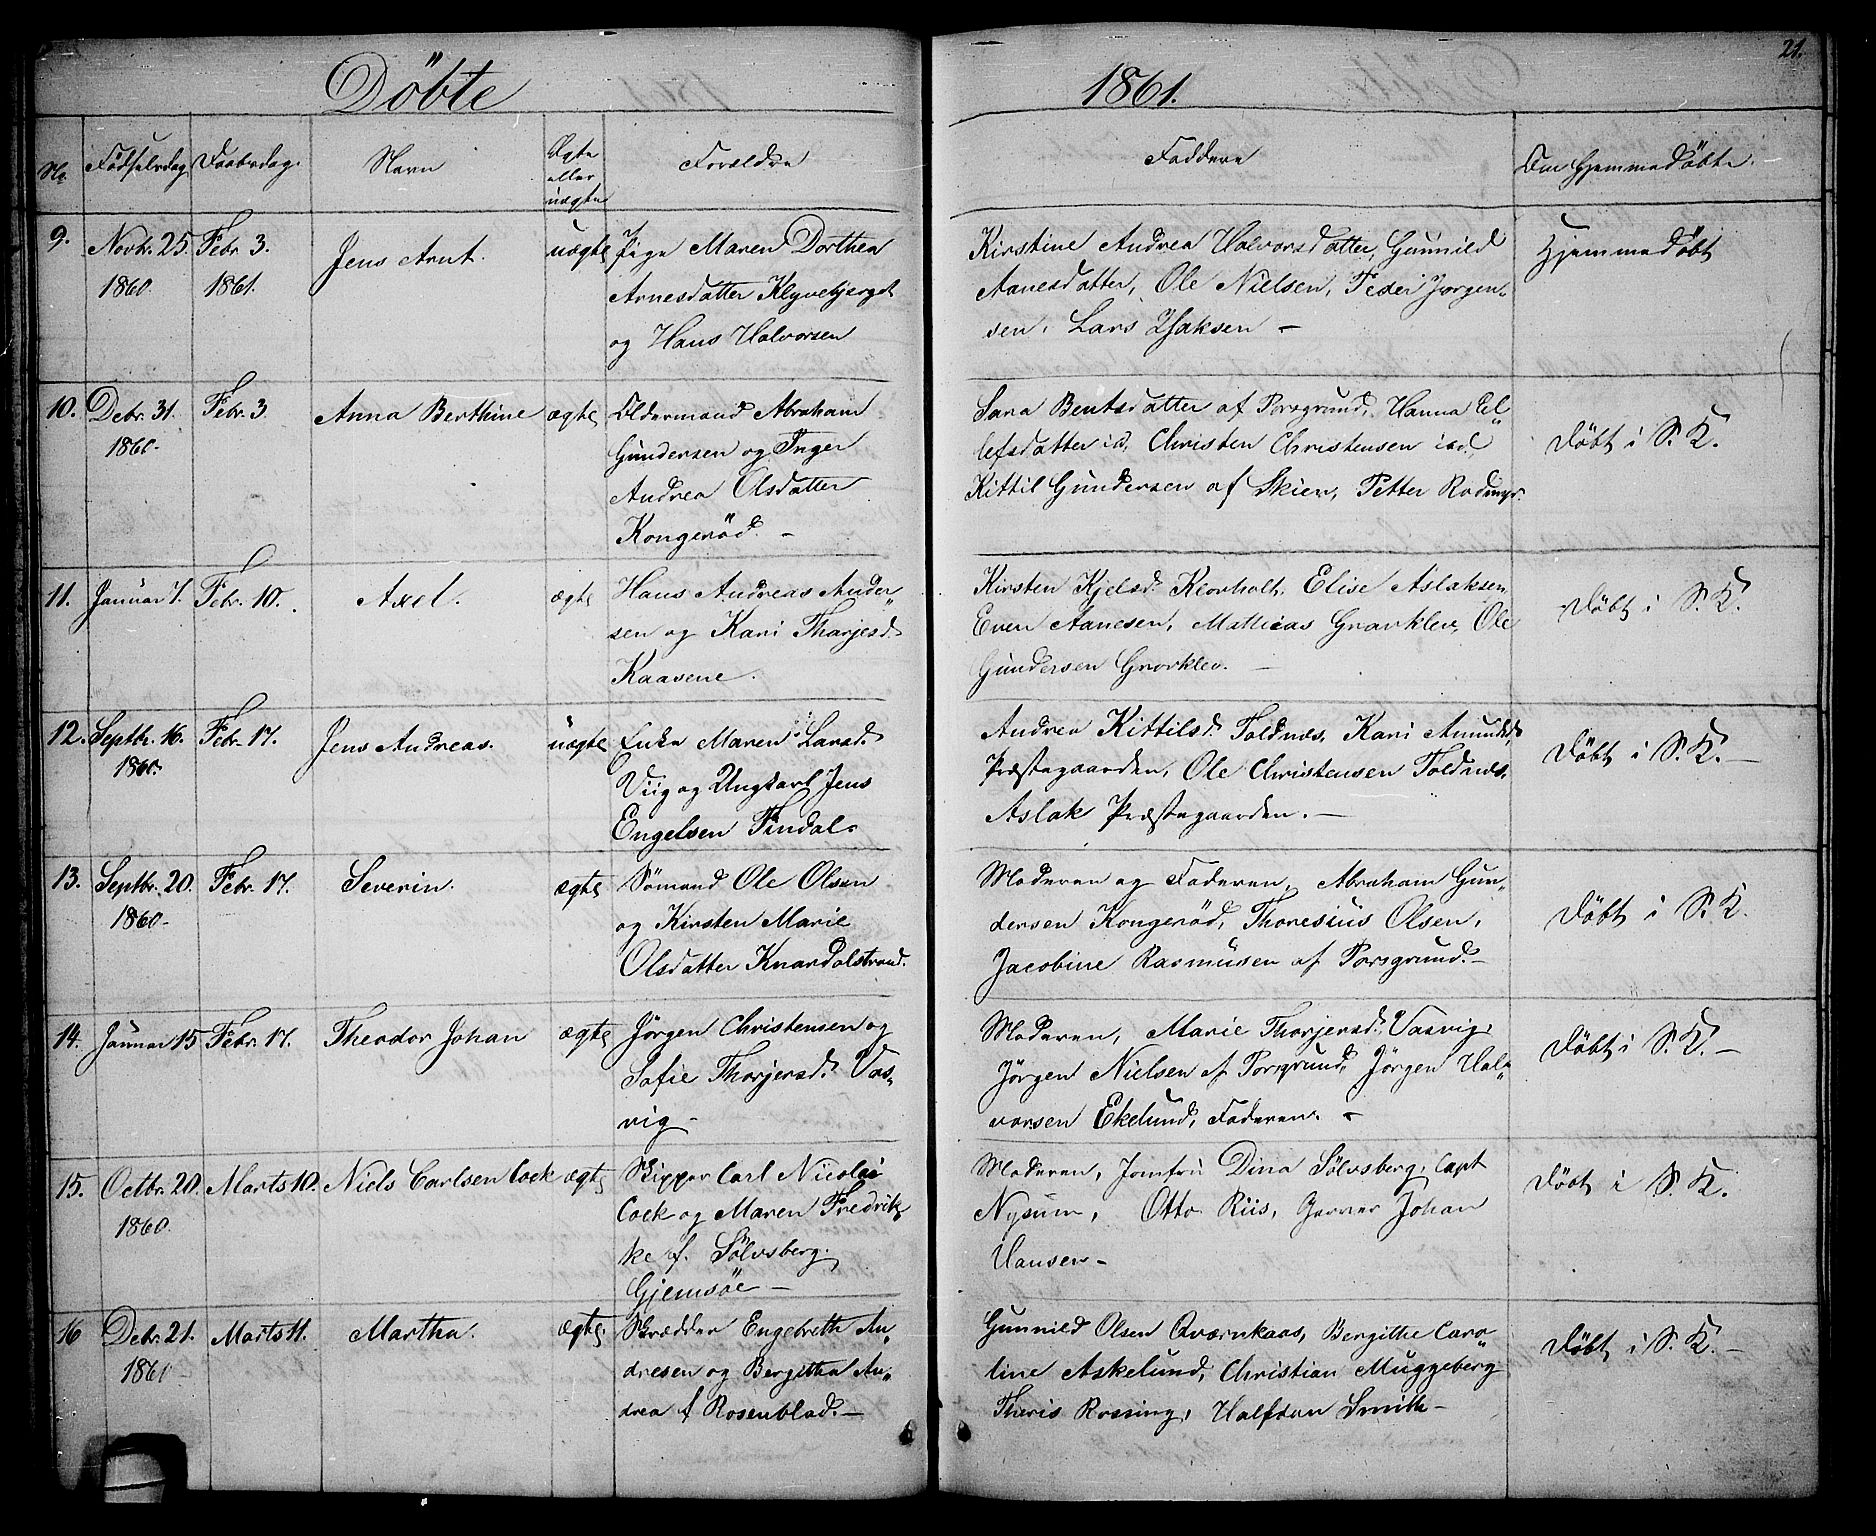 Döbte
1861.
21.
No Födselsdag Daabsdag. Navn Ægte Forældre Faddere Om Hjemmedöbt.
eller
uægte
9. Novbr. 25. Febr. 3. Jens Arnt. uægte Pige Maren Dorthea
1860. 1861. Arnesdatter Klyvebjerget
og Hans Halvorsen
Kirstine Andrea Halvorsdatter, Gunnild Hjemmedöbt
Aanesdatter, Ole Nielsen, Peder Jörgen-
sen. Lars Isaksen –
10. Debr. 31. Febr. 3. Anna Berthine ægte Oldermand Abraham
1860. Gundersen og Inger
Andrea Olsdatter
Kongeröd. –
Sara Bentsdatter af Porsgrund, Hanna El- Döbt i S. K.
lefsdatter ibd, Christen Christensen ibd.
Kittil Gundersen af Skien, Petter Rodmyr.
11. Januar 7. Febr. 10. Axel. ægte Hans Andreas Ander-
sen og Kari Thorjesd.
Kaasene.
Kirsten Kjelsd. Klovholt, Elise Aslaksen, Döbt i S. K.
Even Aanesen, Mathias Gravklev, Ole
Gundersen Gravklev. –
12. Septbr. 16. Febr. 17. Jens Andreas. uægte Enke Maren Larsd.
1860. Viig og Ungkarl Jens
Engelsen Findal.
Andrea Kittilsd. Foldnæs, Kari Amundsd. Döbt i S. K. –
Præstegaarden, Ole Christensen Foldnæs.
Aslak Præstegaarden. –
13. Septbr. 20. Febr. 17. Severin. ægte Sömand Ole Olsen
1860. og Kirsten Marie
Olsdatter Knardalstrand.
Moderen og Faderen, Abraham Gun- Döbt i S. K.
dersen Kongeröd, Thoresius Olsen,
Jacobine Rasmusen af Porsgrund. –
14. Januar 15 Febr. 17. Theodor Johan ægte Jörgen Christensen og
Sofie Thorjersd. Vas-
vig –
Moderen, Marie Thorjersd. Vasvig, Döbt i S. K. –
Jörgen Nielsen af Porsgrund, Jörgen Hal-
vorsen Ekelund, Faderen. –
15. Octbr. 20. Marts 10. Niels Carlsen Cock ægte Skipper Carl Nicolai
1860. Cock og Maren Fredrik-
ke f. Sölvsberg.
Gjemsöe –
Moderen, Jomfru Dina Sölvsberg, Capt Döbt i S. K.
Nysum, Otto Riis, Garver Johan
Hansen –
16 Debr. 21. Marts 11. Martha. ægte. Skrædder Engebreth An-
1860 – dresen og Bergitha An-
drea f Rosenblad. –
Gunnild Olsen Qværnkaas, Bergithe Caro- Döbt i S. K. –
line Askelund, Christian Muggeberg
Theris Rossing, Halfdan Smith –